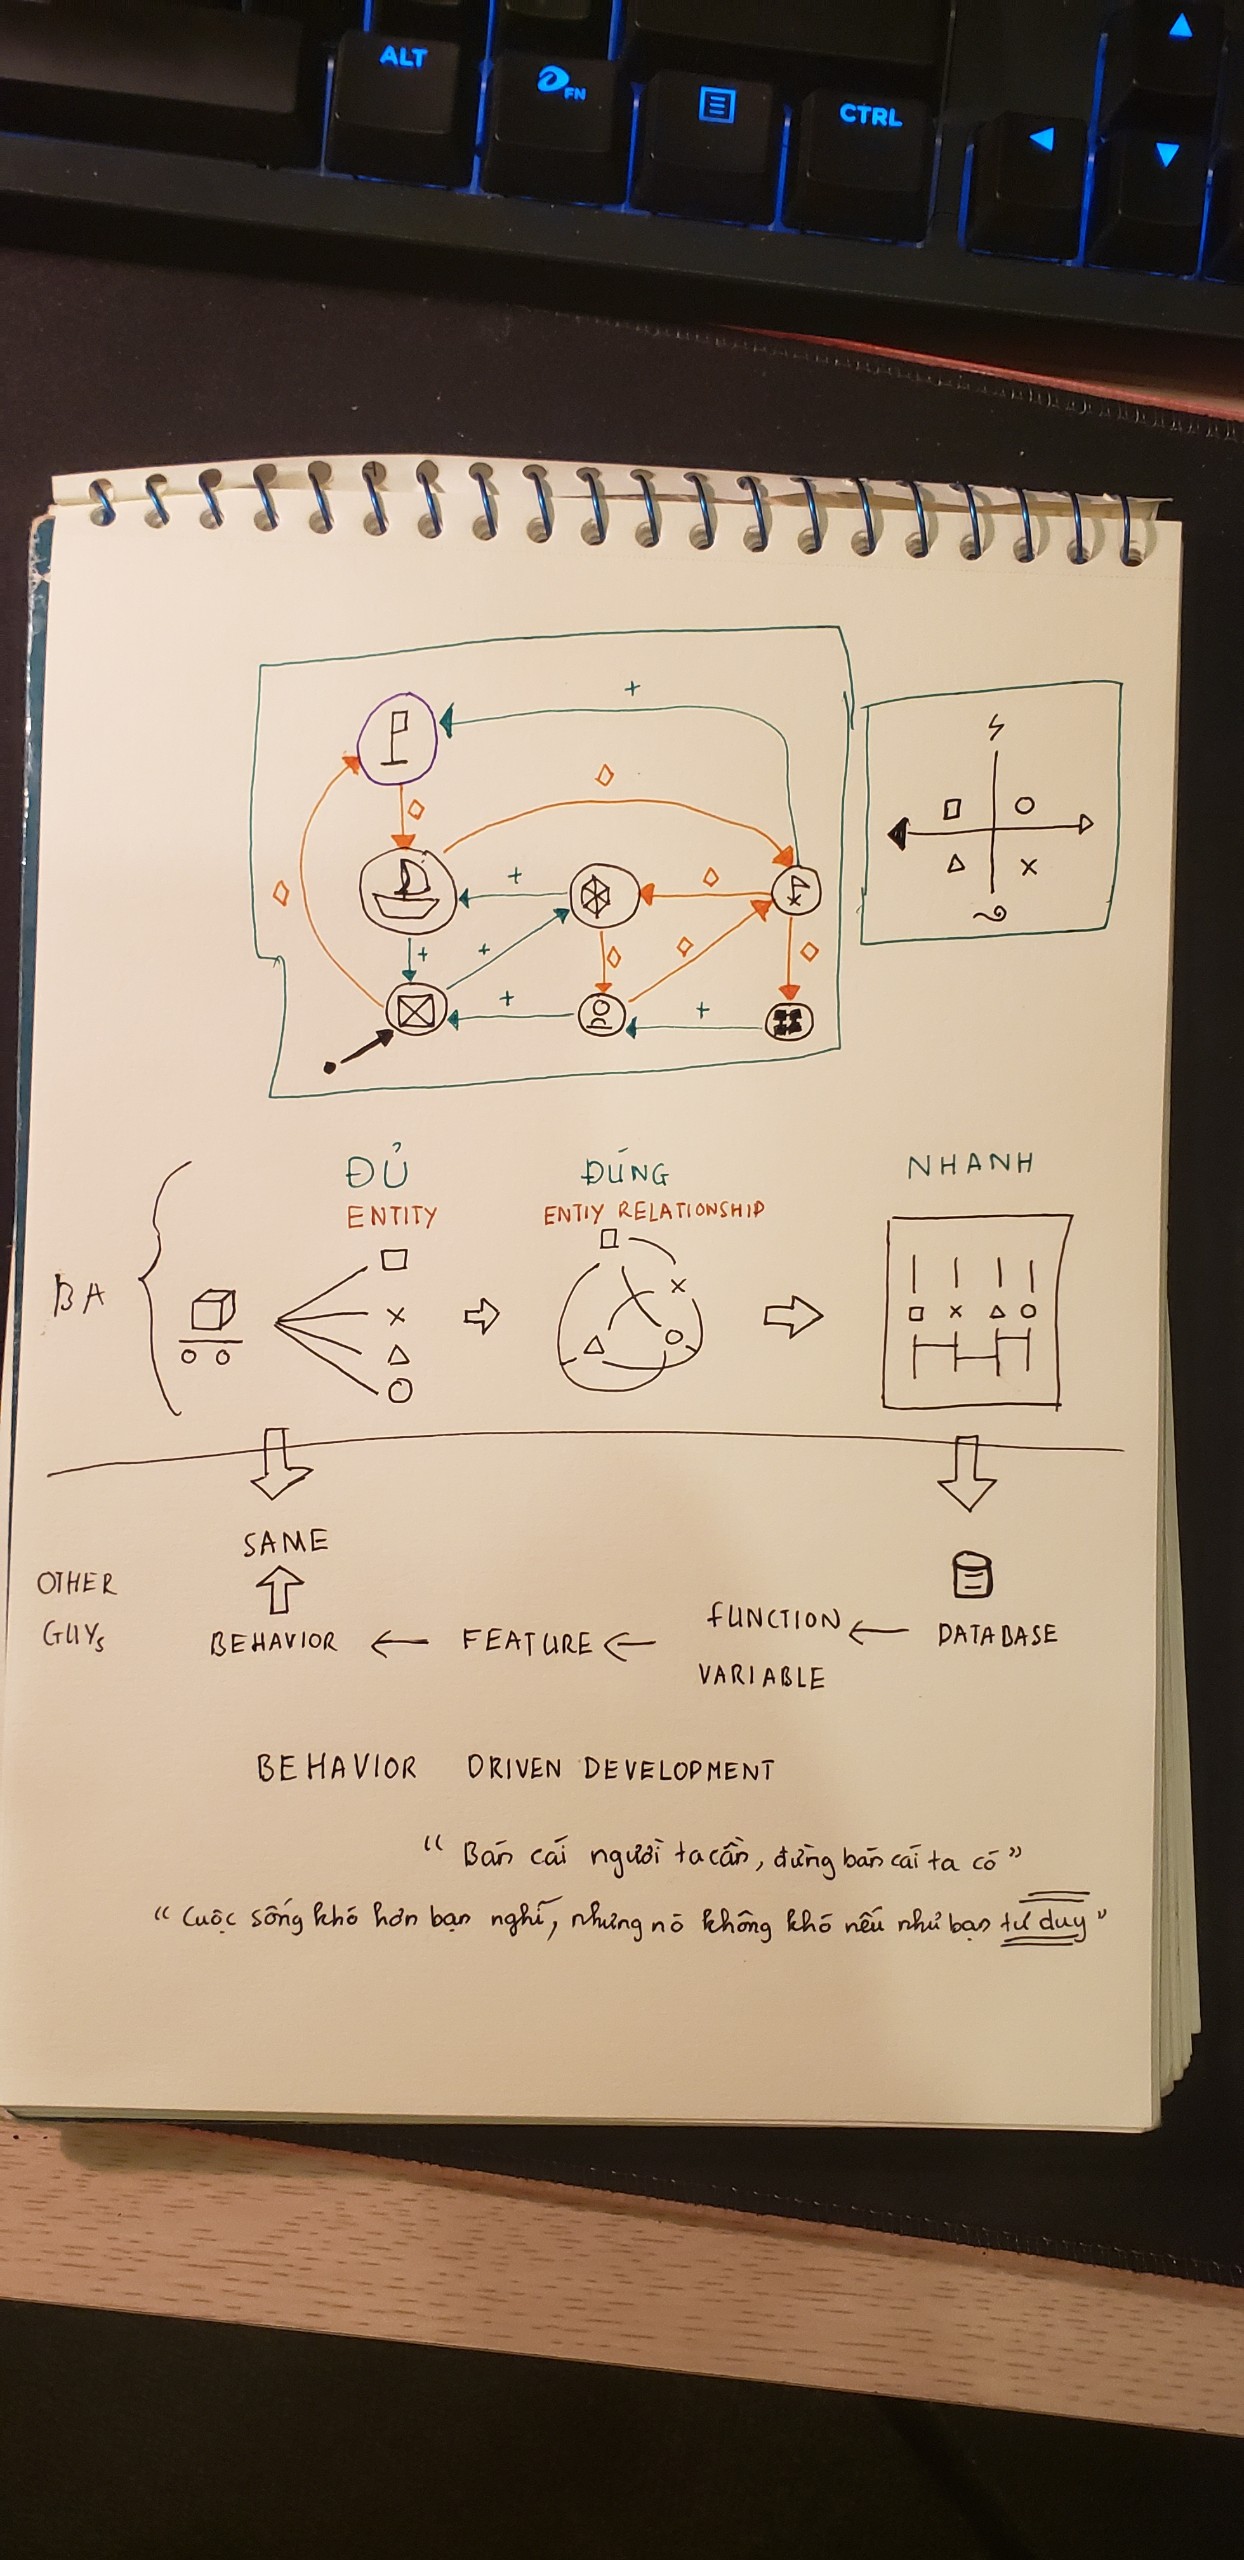 ALT
FN
CTRL
ĐỦ
ĐÚNG
NHANH
ENTITY
ENTIY RELATIONSHIP
BA
SAME
OTHER
GUYS
BEHAVIOR
FEATURE
FUNCTION
VARIABLE
DATABASE
BEHAVIOR DRIVEN DEVELOPMENT
“Bán cái người ta cần, đừng bán cái ta có”
“Cuộc sống khó hơn bạn nghĩ, nhưng nó không khó nếu như bạn tư duy”